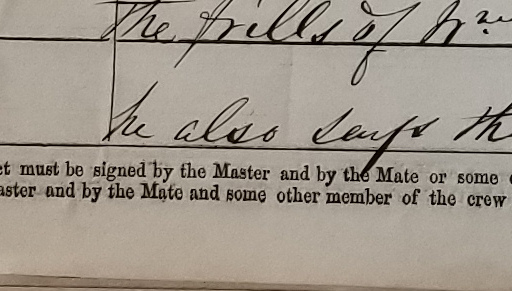 the frills of Mr
he also says th
et must be signed by the Master and by the Mate or some
aster and by the Mate and some other member of the crew